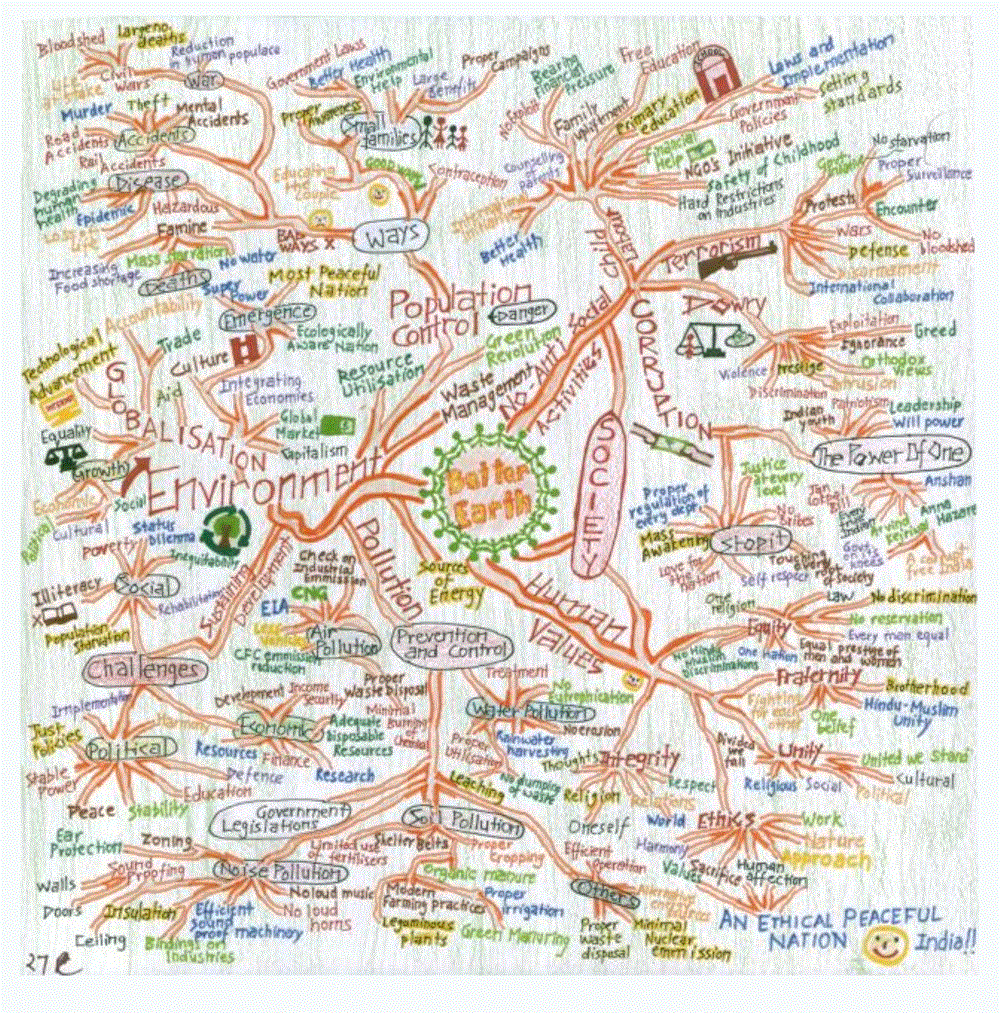 Bloodshed
Large no.
deaths
Reduction
in human populace
Civil
Wars
War
Murder
Theft
Mental
Accidents
Road
Accidents
Accidents
Rail
Accidents
Disease
Degrading
human
health
Epidemic
Loss of
Life
Hazardous
Famine
Mass starvation
No water
Increasing
Food shortage
Deaths
Government Laws
Better Health
Environmental
Help
Large
Benefits
Proper
Campaigns
Proper
Awareness
Small
families
Educating
the
Couple
GOOD WAYS
Contraception
BAD
WAYS X
Ways
Population
Control
Danger
Super
Power
Most Peaceful
Nation
Emergence
Ecologically
Aware Nation
Accountability
Trade
Culture
Aid
Integrating
Economies
Global
Market
Capitalism
Technological
Advancement
GLOBALISATION
Equality
Growth
Economic
Social
Cultural
Political
Resource
Utilisation
Green
Revolution
Waste
Management
Environment
Better
Earth
No Anti Social
Activities
Rearing
Financial
Pressure
Free
Education
SCHOOL
Laws and
Implementation
No Exploit
Family
Upliftment
Primary
education
Government
Policies
Setting
standards
Counselling
of
Parents
Financial
Help
NGO's Initiative
Safety of Childhood
Hard Restrictions
on Industries
International
Initiative
Better
Health
Child
Labour
No starvation
Proper
Surveillance
Protests
Encounter
Wars
No
bloodshed
Defense
Disarmament
International
Collaboration
Terrorism
Dowry
Exploitation
Greed
Ignorance
Orthodox
views
Violence
Prestige
Intrusion
Discrimination
CORRUPTION
Indian
youth
Patriotism
Leadership
Will power
The Power Of One
Anshan
Jan
Lokpal
Bill
Every
Indian
Anna
Hazare
Arvind
Kejriwal
Govt.
on
knees
A corrupt
free India
SOCIETY
Justice
at every
level
Proper
regulation of
every dept.
No
Bribes
Mass
Awakening
Stop it
Love for
the
nation
Self respect
Touching
every root
of Society
Status
Dilemma
Poverty
Inequitability
Illiteracy
Social
Rehabilitation
Population
Starvation
Sustaining
Development
Challenges
Check on
Industrial
Emmission
CNG
EIA
Air
Pollution
CFC emmission
reduction
Pollution
Sources
of
Energy
Prevention
and Control
Human
Values
One
religion
Law
No discrimination
Equity
No reservation
Every man equal
Equal prestige of
men and women
No Hindu
Muslim
Discriminations
One nation
Fraternity
Brotherhood
Hindu-Muslim
Unity
Fighting
for each
other
One
belief
Divided
we
fall
Unity
United we Stand
Cultural
Political
Religious
Social
Implementation
Just
Policies
Harmony
Political
Stable
Power
Peace
Stability
Education
Defence
Development
Income
Security
Economic
Resources
Finance
Adequate
Disposable
Resources
Research
Proper
Waste Disposal
Minimal
Burning
of
Chemical
Treatment
No
Eutrophication
Water Pollution
No erosion
Proper
Utilisation
Rainwater
harvesting
No dumping
of waste
Thoughts
Integrity
Religion
Relations
Respect
Oneself
World
Ethics
Work
Nature
Approach
Harmony
Values
Sacrifice
Human
affection
Government
Legislations
Leaching
Soil Pollution
Ear
Protection
Zoning
Sound
Proofing
Noise Pollution
Walls
Doors
Insulation
Efficient
Sound
proof machinoy
No loud music
No loud
horns
Ceiling
Bindings on
Industries
Limited use
of fertilisers
Shelter Belts
Proper
Cropping
Organic manure
Modern
Farming practices
Proper
irrigation
Leguminous
plants
Green Manuring
Efficient
Operation
Others
Alternative
energies
Proper
Waste
disposal
Minimal
Nuclear
emmission
AN ETHICAL PEACEFUL
NATION
India!!
27